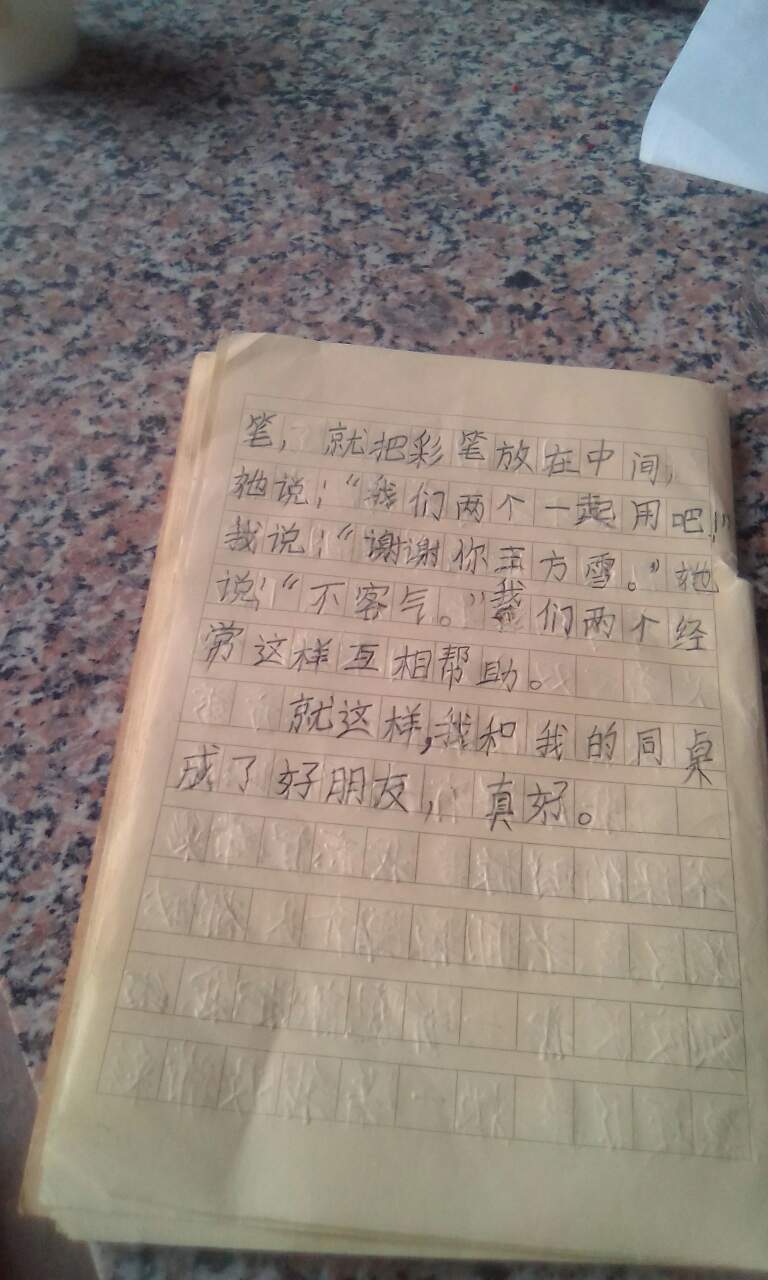 笔，就把彩笔放在中间，
她说：“我们两个一起用吧！”
我说：“谢谢你王方雪。”她
说：“不客气。”我们两个经
常这样互相帮助。
就这样，我和我的同桌
成了好朋友，真好。